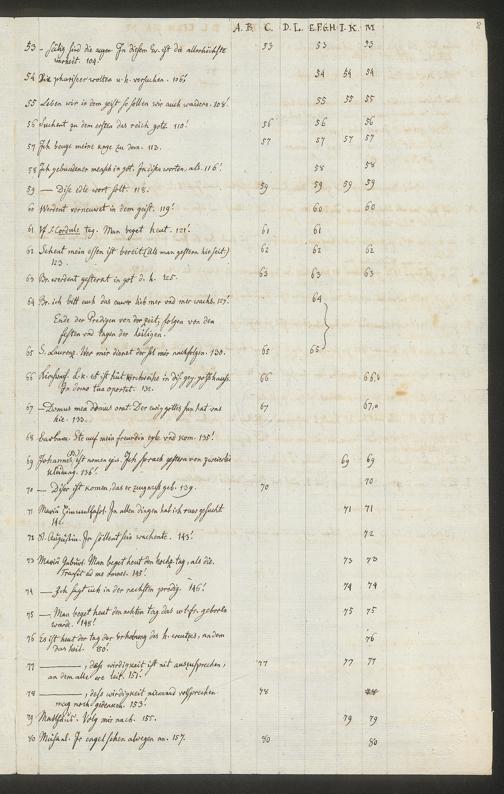 A. B. C. D. L. E.F.G.H. I. K. M 2
53 – sälig sind die augen In disen Ev. ist die allerhöchste 53 53 53
warheit. 104.
54 Die phariseer wolten u. h. versuchen. 106! 54 54 54
55 Leben wir in dem geist so sollen wir auch wandern. 108! 55 55 55
56 Suchent zu dem ersten das reich gotz. 110! 56 56 56
57 Ich beuge meine knye zu dem. 113. 57 57 57 57
58 in got. In disen worten, als. 116! 58 58
59 — Dise edle wort solt. 118. 59 59 59 59
60 Werdent vernewet in dem geist. 119! 60 60
61 Vf S. Cordule tag. Man beget heut. 121! 61 61
62 Sehent mein essen ist bereit (Als man gestern hie seit) 62 62 62
123.
63 Br. werdent gesterckt in got d. h. 125. 63 63 63
64 Br. ich bitt euch das ewer lieb mer vnd mer wachs. 127! 64
Ende der Predigen von der zeit, folgen von den
festen vnd tagen der heiligen.
65 S. Laurenz. Wer mir dienet der sol mir nachfolgen. 130. 65 65
66 L. K. es ist heut kirchweihe in diß 66 66,b
In domo tua oportet. 132.
67 — Domus mea domus orat. Der ewig gottes sun hat vns 67 67,a
hie. 133.
68 Barbare. Ste uf mein freundin eyle vnd kom. 135!
69 Johannes Ich sprach gestern von zweierlei 69 69
136!
70 — Diser ist komen, das er zeugnuß geb. 139. 70 70
71 Mariä Himmelfahrt. In allen dingen hab ich ruw gesucht 71 71
142.
72 S. Augustin. Ir söllent sein wachent. 143! 72
73 Mariä Geburt. Man beget heut den tag, als die. 73 73
Transit ad me omnes. 145!
74 — Ich sagt uch in der nechsten predig. 146! 74 74
75 — Man beget heut den achten tag das v. l. fr. geborn 75 75
ward. 148!
76 Es ist heut der tag der Erhebung des h. creutzes, an dem 76
das heil. 80!
77 — , dess wirdigkeit ist nit auszusprechen, 77 77 77
an dem alle we leit. 151!
78 — , dess wirdigkeit niemand volsprechen 78 78
mag noch gedencken. 153.
79 Matthäus. Volg mir nach. 155. 79 79
80 Michael. Ir engel sehen alwegen an. 157. 80 80